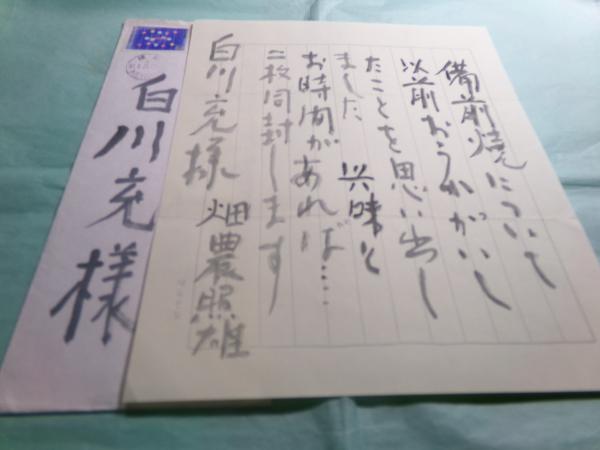 備前焼について
以前おうかがいし
たことを思い出し
ました 興味と
お時間があれば…
二枚同封します
白川充様 畑農照雄
白川充様